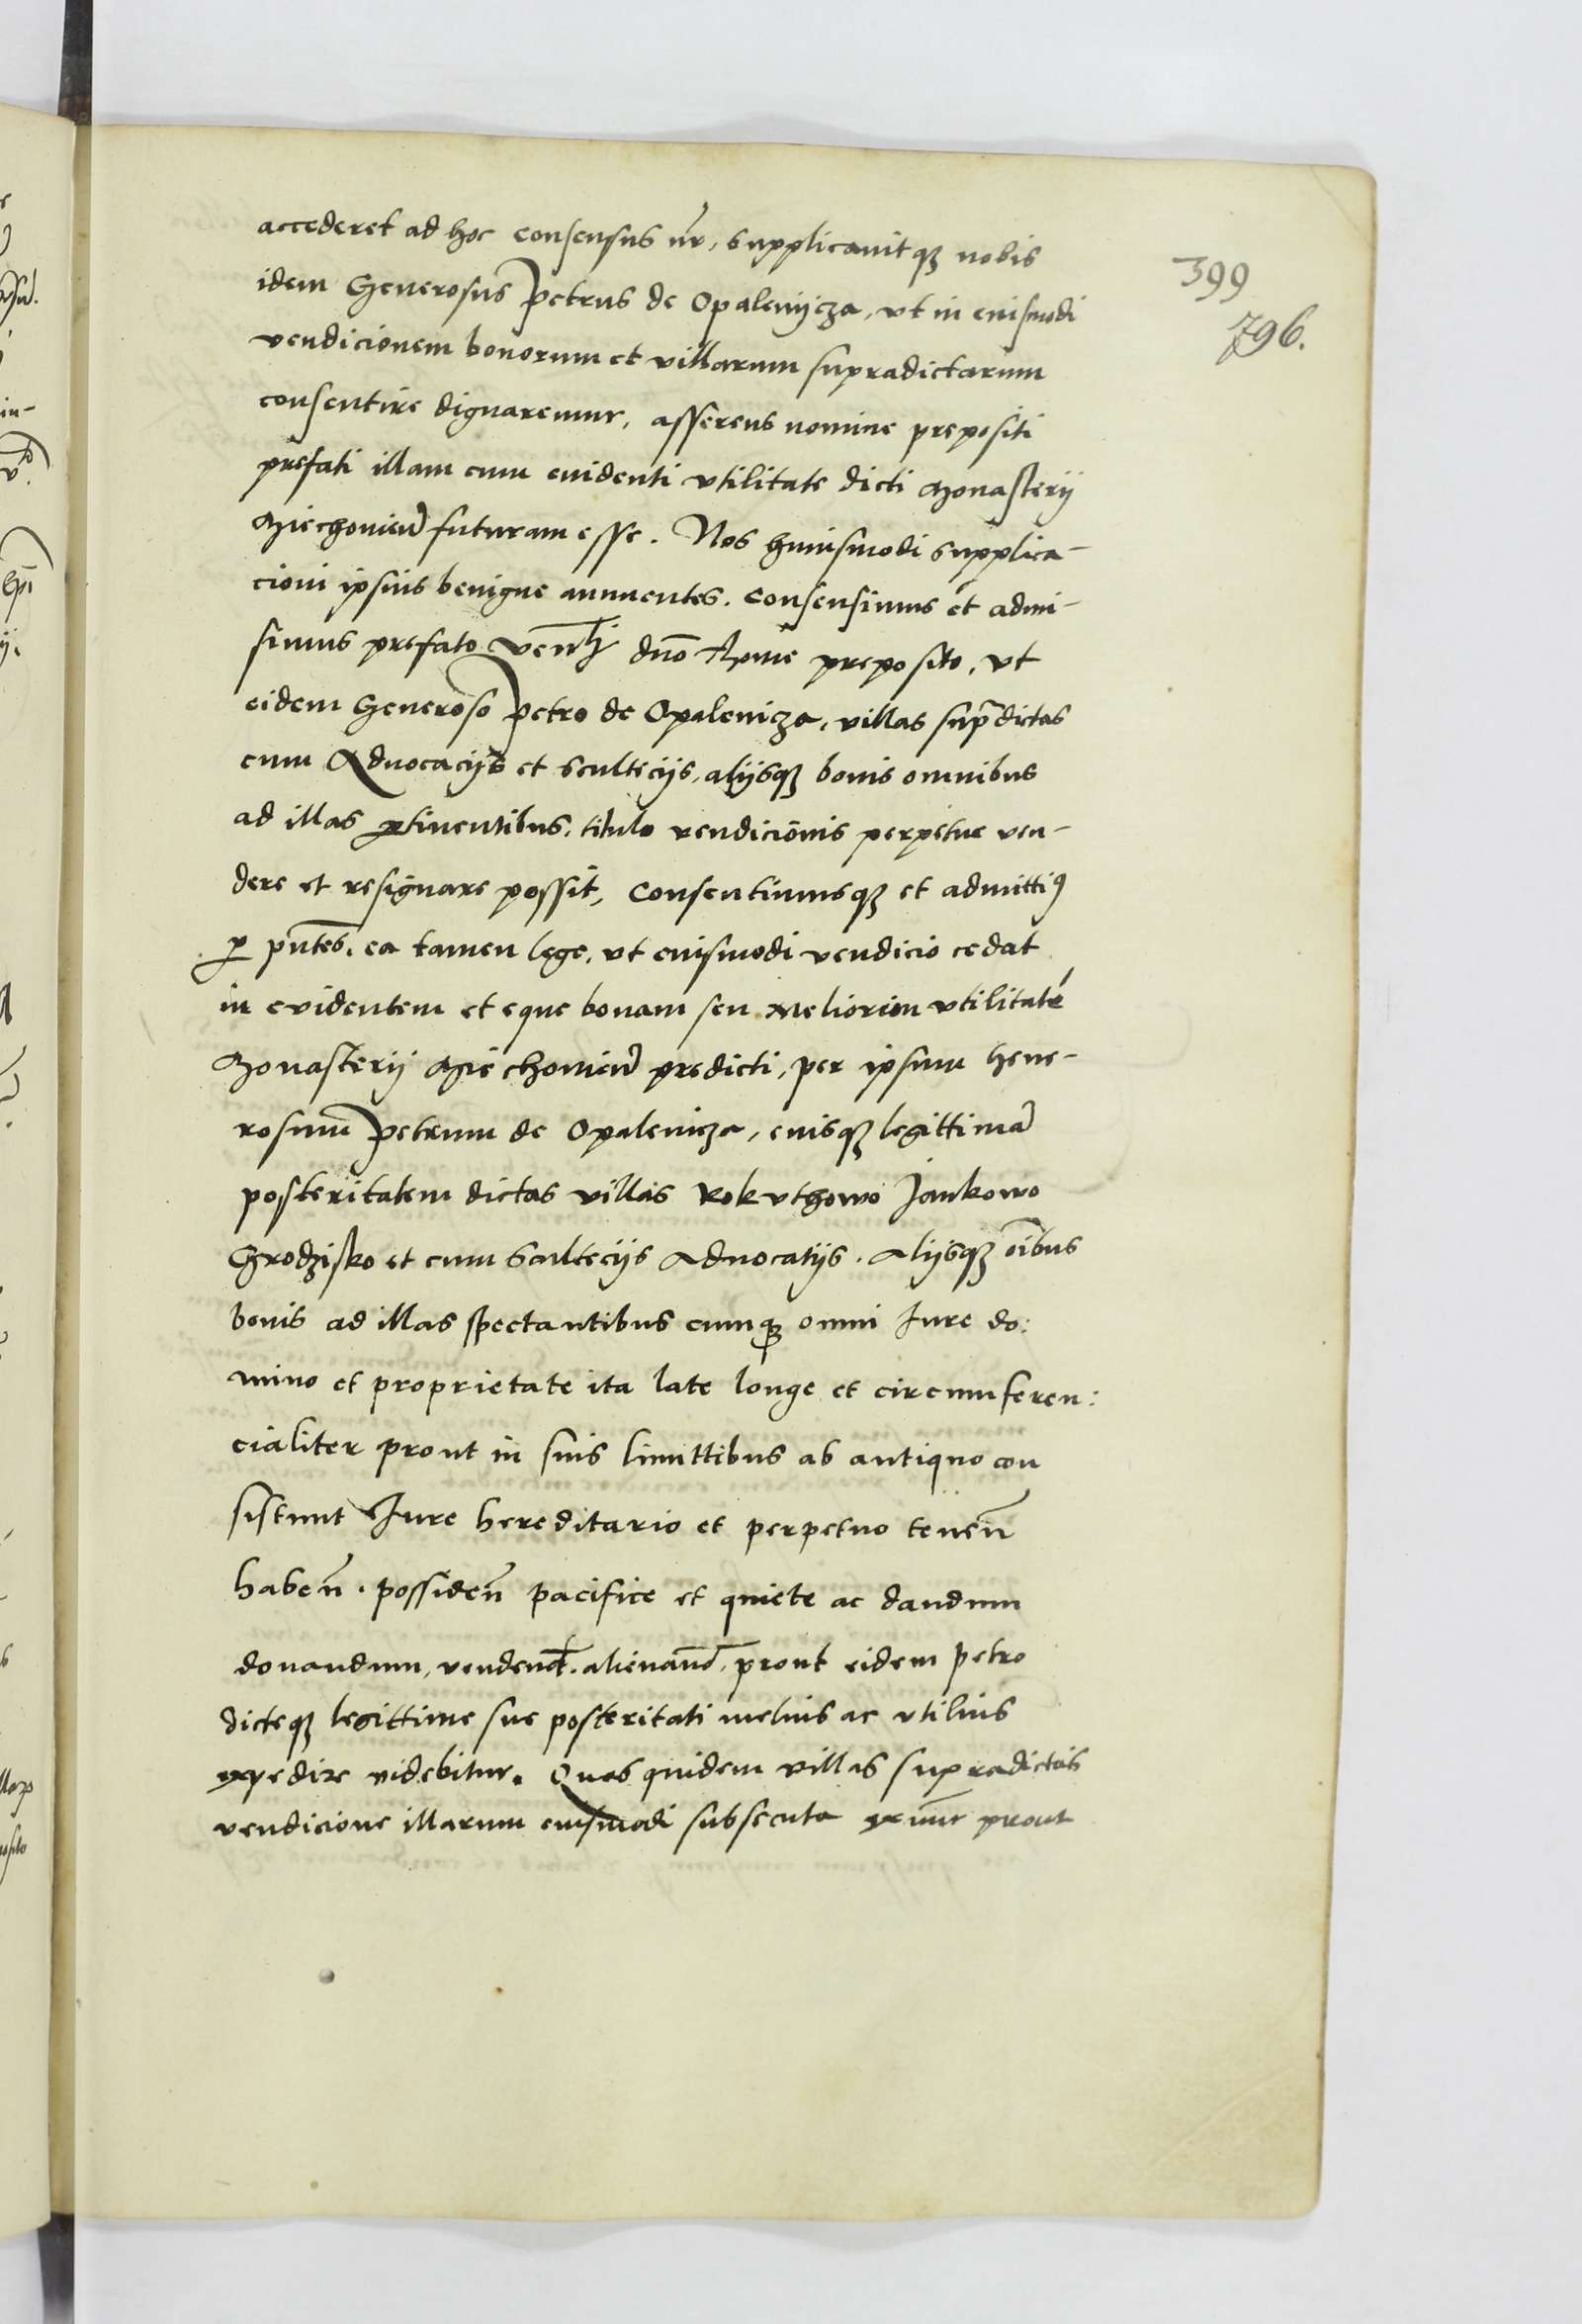 accederet ad hoc consensus nr̃, supplicauitqȝ nobis
idem Generosus Petrus de Opalenijcza, vt in euismodi
vendicionem bonorum et villarum supradictarum
consentire dignaremur, asserens nomine prepositi
prefati illam cum euidenti vtilitate dicti Monasterij
Miechouieñ futuram esse. Nos huiusmodi supplica-
cioni ipsius benigne annuentes. consensimus et admi-
simus prefato veñli dño preposito, vt
eidem Generoso Petro de Opalenicza, villas sup̃dictas
cum Aduocacijs et scultecijs, alijsqȝ bonis omnibus
ad illas ꝑtinentibus, titulo vendicionis perpetue ven-
dere et resignare possit, Consentimusqȝ et admittiꝰ
ꝑ pñtes, ea tamen lege, vt euismodi vendicio cedat
in evidentem et eque bonam seu meliorem vtilitatē
Monasterij Miechouieñ predicti, per ipsum Gene-
rosum Petrum de Opalenicza, euisqȝ legittimã
posteritatem dictas villas Kokuthowo Jankowo
Grodzisko et cum Scultecijs Aduocatijs. Alijsqȝ oĩbus
bonis ad illas spectantibus cumqȝ omni Iure do:
mino et proprietate ita late longe et circumferen:
cialiter prout in suis limittibus ab antiquo con
sistunt Iure hereditario et perpetuo teneñ
habeñ. possideñ pacifice et quiete ac dandum
donandum, vendend̃. alienañd, prout eidem Petro
dicteqȝ legittime sue posteritati melius ac vtilius
expedire videbitur. Quas quidem villas supradictas
vendicione illarum euismodi subsecuta prout
399
796.